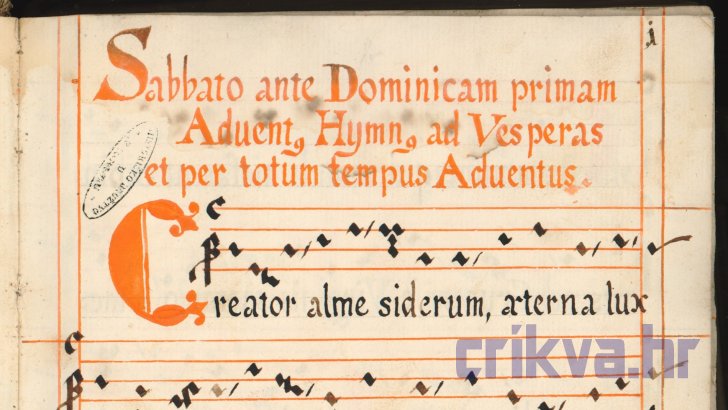 i
Sabbato ante Dominicam primam
Advent9 Hymn9 ad Vesperas
et per totum tempus Adventus.
Creator alme siderum, æterna lux
crikva.hr